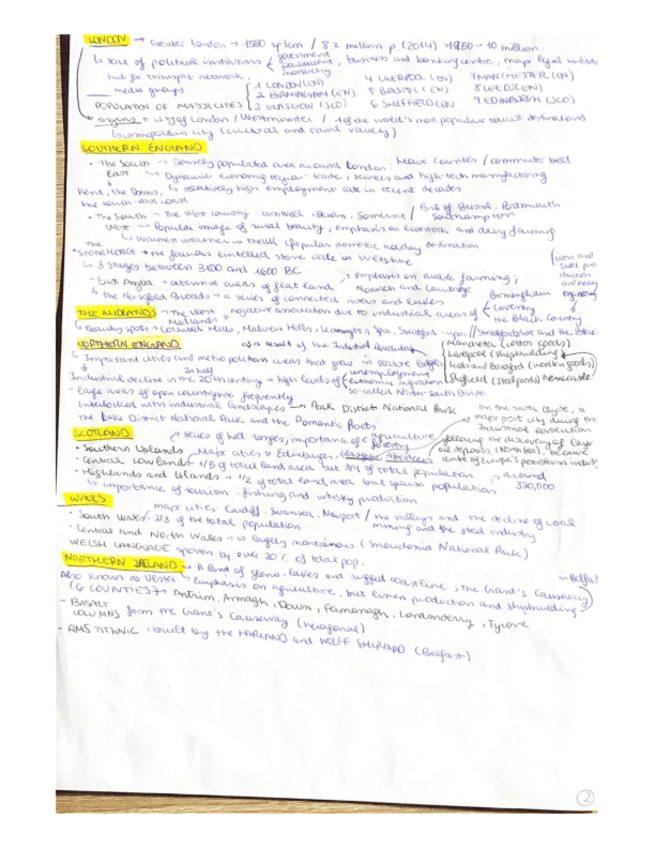 LONDON → Greater London → 1580 sp km / 8.2 million p. (2014) >1950 - 10 million
↳ seat of political institutions < government parliament, monarchy business and banking centre, major legal
hub for transport network,
media groups
POPULATION OF MAJOR CITIES
1 LONDON (EN) 4 LIVERPOOL (EN) 7 MANCHESTER (EN)
2 BIRMINGHAM (EN) 5 BRISTOL (EN) 8 LEEDS (EN)
3 GLASGOW (SCO) 6 SHEFFIELD (EN) 9 EDINBURGH (SCO)
city of London / Westminster / 1 of the world's most popular tourist destinations
↳ cosmopolitan city (cultural and variety)
SOUTHERN ENGLAND
• The South East → Densely populated area around London: Home Counties / commuter belt
→ Dynamic economic region: trade, services and high-tech manufacturing
Kent, the Downs, ↳ relatively high employment rate in recent decades
the south-east coast
• The South West → The West country: Cornwall, Devon, Somerset / Port of Bristol, Portsmouth Southampton
→ Popular image of rural beauty, emphasis on livestock and dairy farming
↳ warmest weather in the UK (popular domestic holiday destination
STONEHENGE → the famous stone circle in Wiltshire
↳ 3 stages between 3100 and 1600 BC
• East Anglia → extensive areas of flat land, → emphasis on arable farming,
Norwich and Cambridge
↳ the Norfolk Broads → a series of connected rivers and lakes
THE MIDLANDS → The West Midlands → negative association due to industrial areas of < Birmingham Coventry the Black Country
iron and steel production and heavy engineering
↳ Beauty spots → Cotswold Hills, Malvern Hills, Leamington Spa, Stratford-upon
NORTHERN ENGLAND
as a result of the Industrial Revolution
↳ Important cities and metropolitan areas that grew in stature
Manchester (cotton goods)
Liverpool (shipbuilding
Leeds and Bradford (woollen goods)
Sheffield (steel goods) Newcastle
Industrial decline in the 2nd half 20th century → high levels of { unemployment economic migration
so-called North South Divide
• Large areas of open countryside frequently
interlocked with industrial landscapes → Peak District National Park
the Lake District National Park and the Romantic Poets
on the river Clyde, a
major port city during the
Industrial Revolution
SCOTLAND
→ series of hill ranges, importance of agriculture forestry
• Southern Uplands
• Central Lowlands → Major cities → Edinburgh, Glasgow, Aberdeen
following the discovery of large
oil deposits (North Sea), became
centre of Europe's petroleum industry
1/5 of total land area but 3/4 of total population
• Highlands and Islands → 1/2 of total land area but sparse population → around 330,000
↳ importance of tourism, fishing and whisky production
WALES
major cities: Cardiff, Swansea, Newport / the valleys and the decline of coal
mining and the steel industry
• South Wales → 2/3 of the total population
• Central and North Wales → is largely mountainous (Snowdonia National Park)
WELSH LANGUAGE spoken by over 20% of total pop.
NORTHERN IRELAND → A land of glens, lakes and rugged coastline, the Giant's Causeway
Also known as Ulster ↳ Emphasis on agriculture, but linen production and shipbuilding → in Belfast
(6 COUNTIES) → Antrim, Armagh, Down, Fermanagh, Londonderry, Tyrone
- BASALT COLUMNS form the Giant's Causeway (hexagonal)
- RMS TITANIC: built by the HARLAND and WOLFF SHIPYARD (Belfast)
2